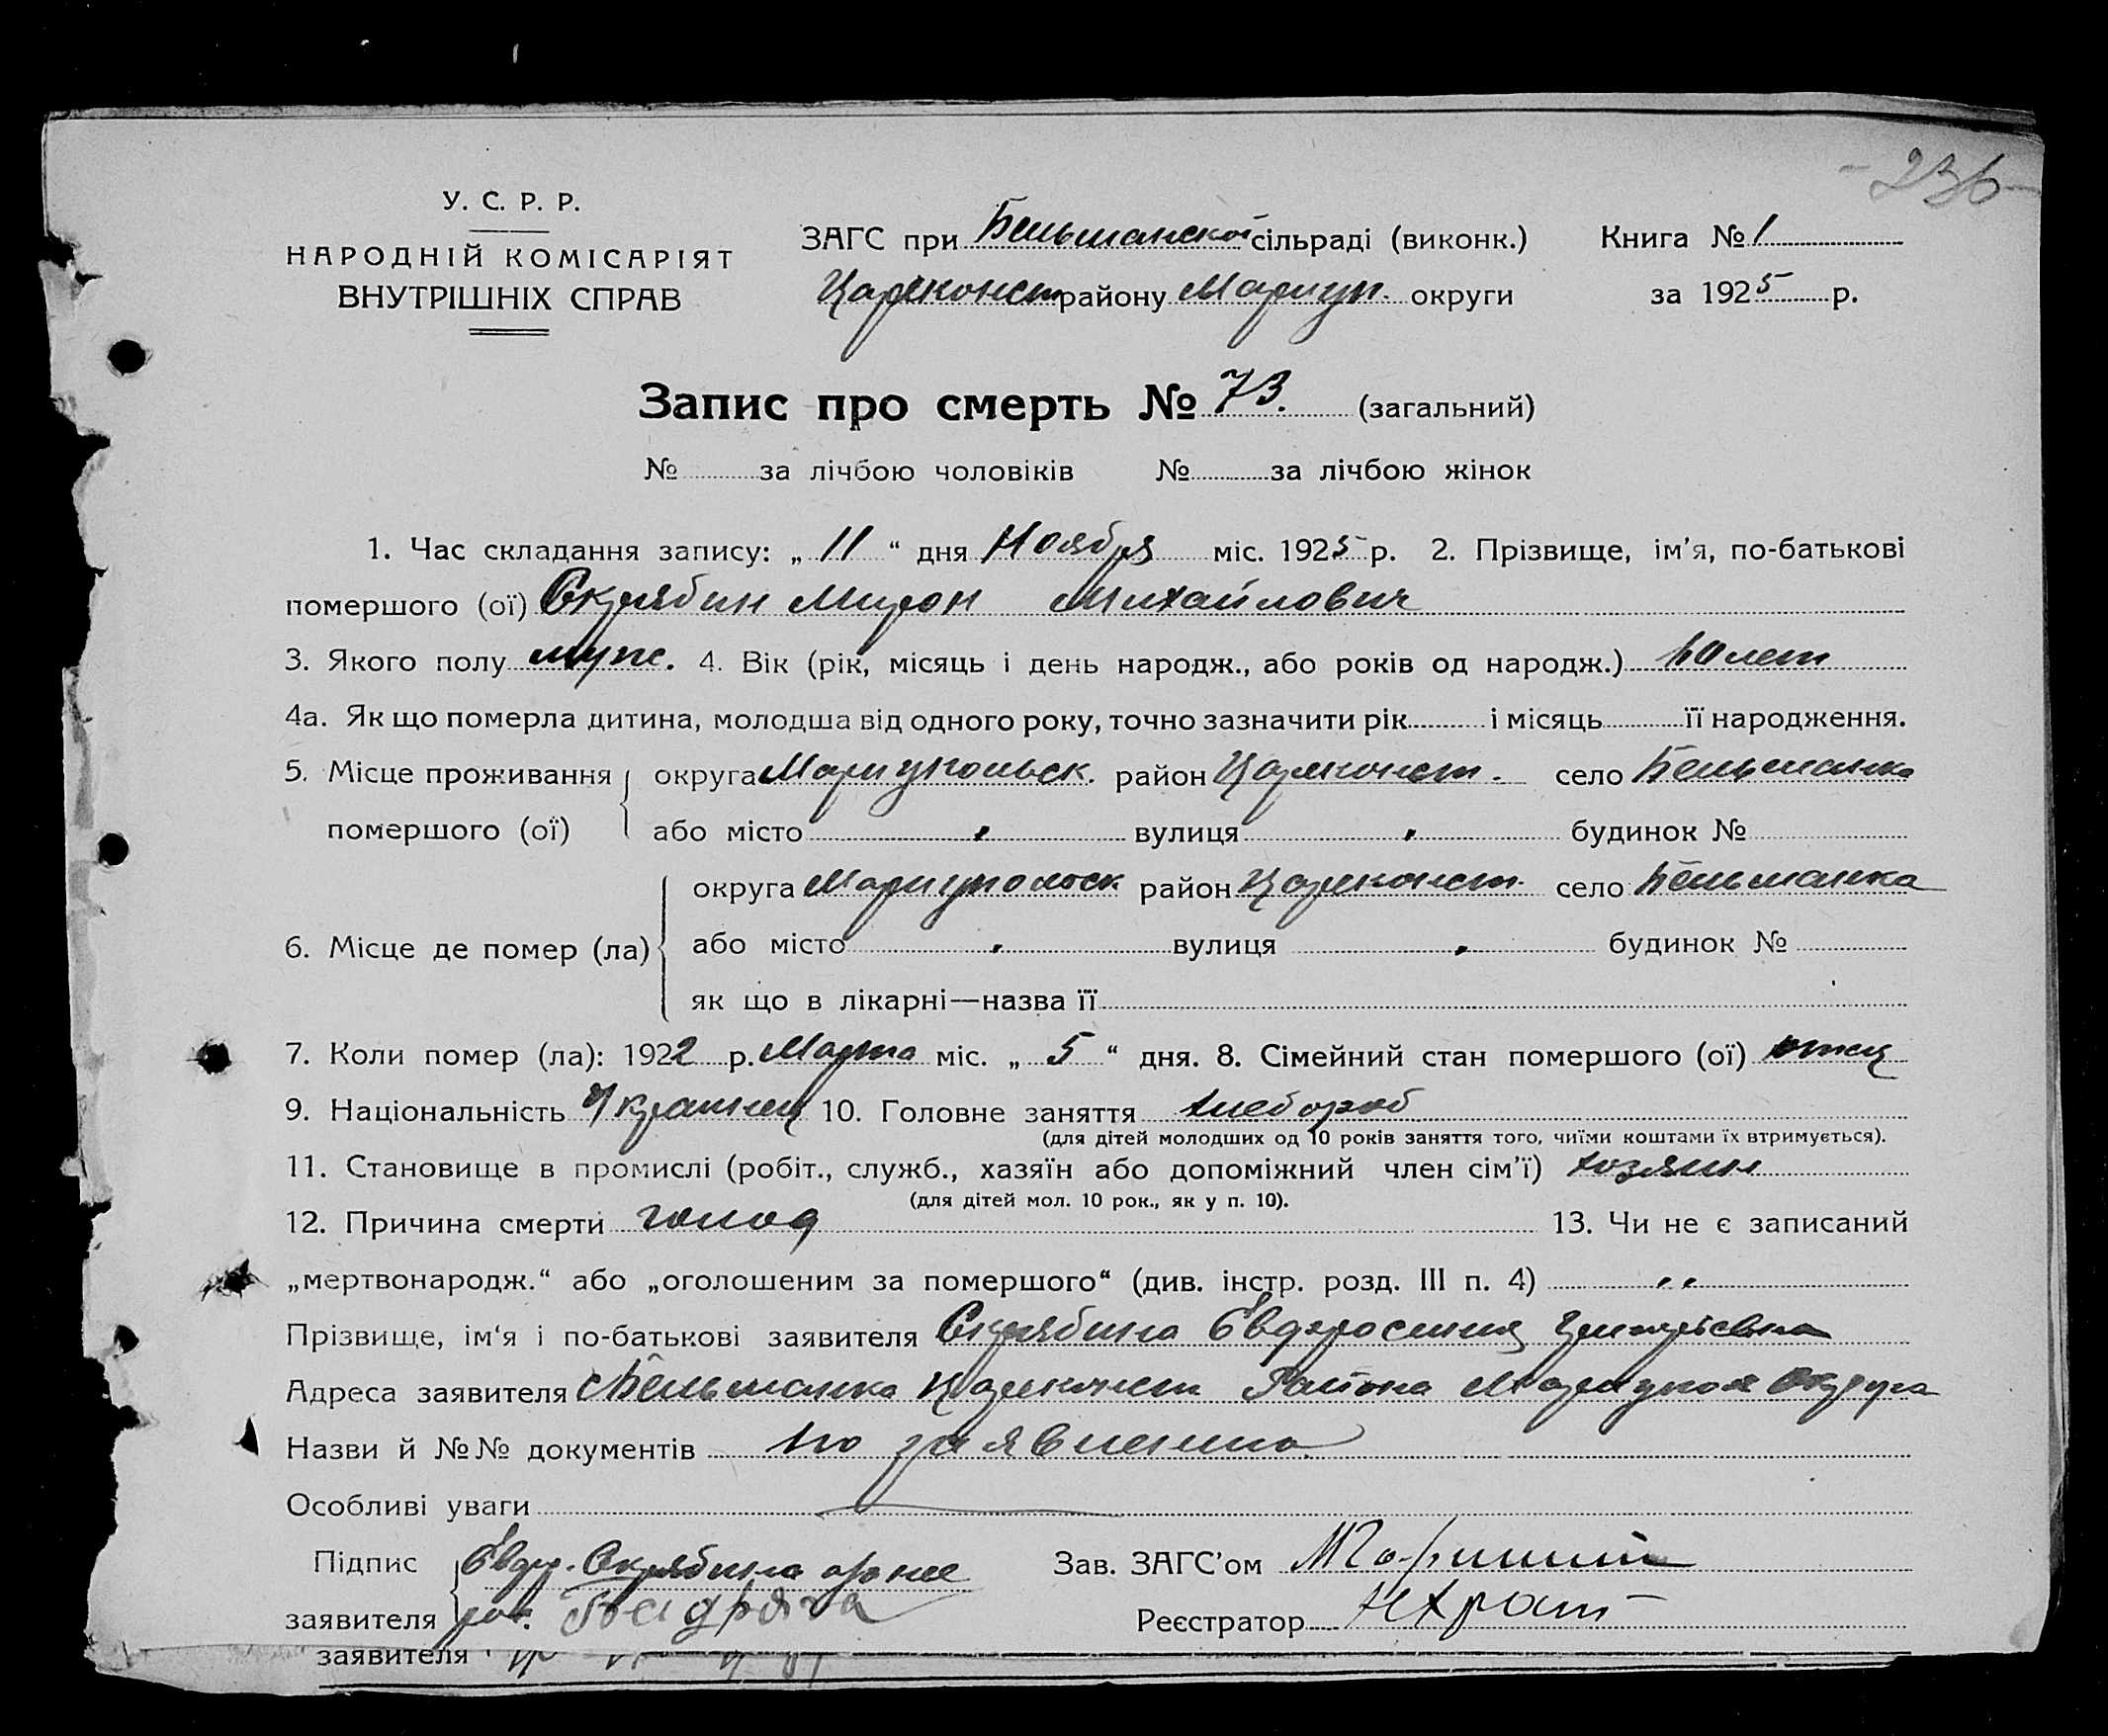 - 236 -
У. С. Р. Р.
НАРОДНІЙ КОМІСАРІЯТ
ВНУТРІШНІХ СПРАВ
ЗАГС при Бельманской сільраді (виконк.) Книга № 1
Цареконст району Мариуп. округи за 1925 р.
Запис про смерть № 73. (загальний)
№ за лічбою чоловіків № за лічбою жінок
1. Час складання запису: „ 11 “ дня Ноября міс. 1925 р. 2. Прізвище, ім’я, по-батькові
помершого (ої) Скрябин Мирон Михайлович
3. Якого полу муж. 4. Вік (рік, місяць і день народж., або років од народж.) 60 лет
4а. Як що померла дитина, молодша від одного року, точно зазначити рік і місяць її народження.
5. Місце проживання округа Мариупольск. район Цареконст. село Бельманка
помершого (ої) або місто вулиця будинок №
округа Мариупольск район Цареконст. село Бельманка
6. Місце де помер (ла) або місто вулиця будинок №
як що в лікарні—назва її
7. Коли помер (ла): 1922 р. Марта міс. „ 5 “ дня. 8. Сімейний стан помершого (ої) отец
9. Національність Украинец 10. Головне заняття хлебороб
(для дітей молодших од 10 років заняття того, чиїми коштами їх втримується).
11. Становище в промислі (робіт., служб., хазяїн або допоміжний член сім’ї) хозяин
(для дітей мол. 10 рок., як у п. 10).
12. Причина смерти голод 13. Чи не є записаний
„мертвонародж.“ або „оголошеним за помершого“ (див. інстр. розд. III п. 4) „
Прізвище, ім‘я і по-батькові заявителя Скрябина Евдросиния
Адреса заявителя с Бельманка Цареконст Района Мариупол Округа
Назви й №№ документів по заявлению
Особливі уваги
Підпис Евдр. Скрябина а за нее Зав. ЗАГС’ом
заявителя рос. Реєстратор
заявителя